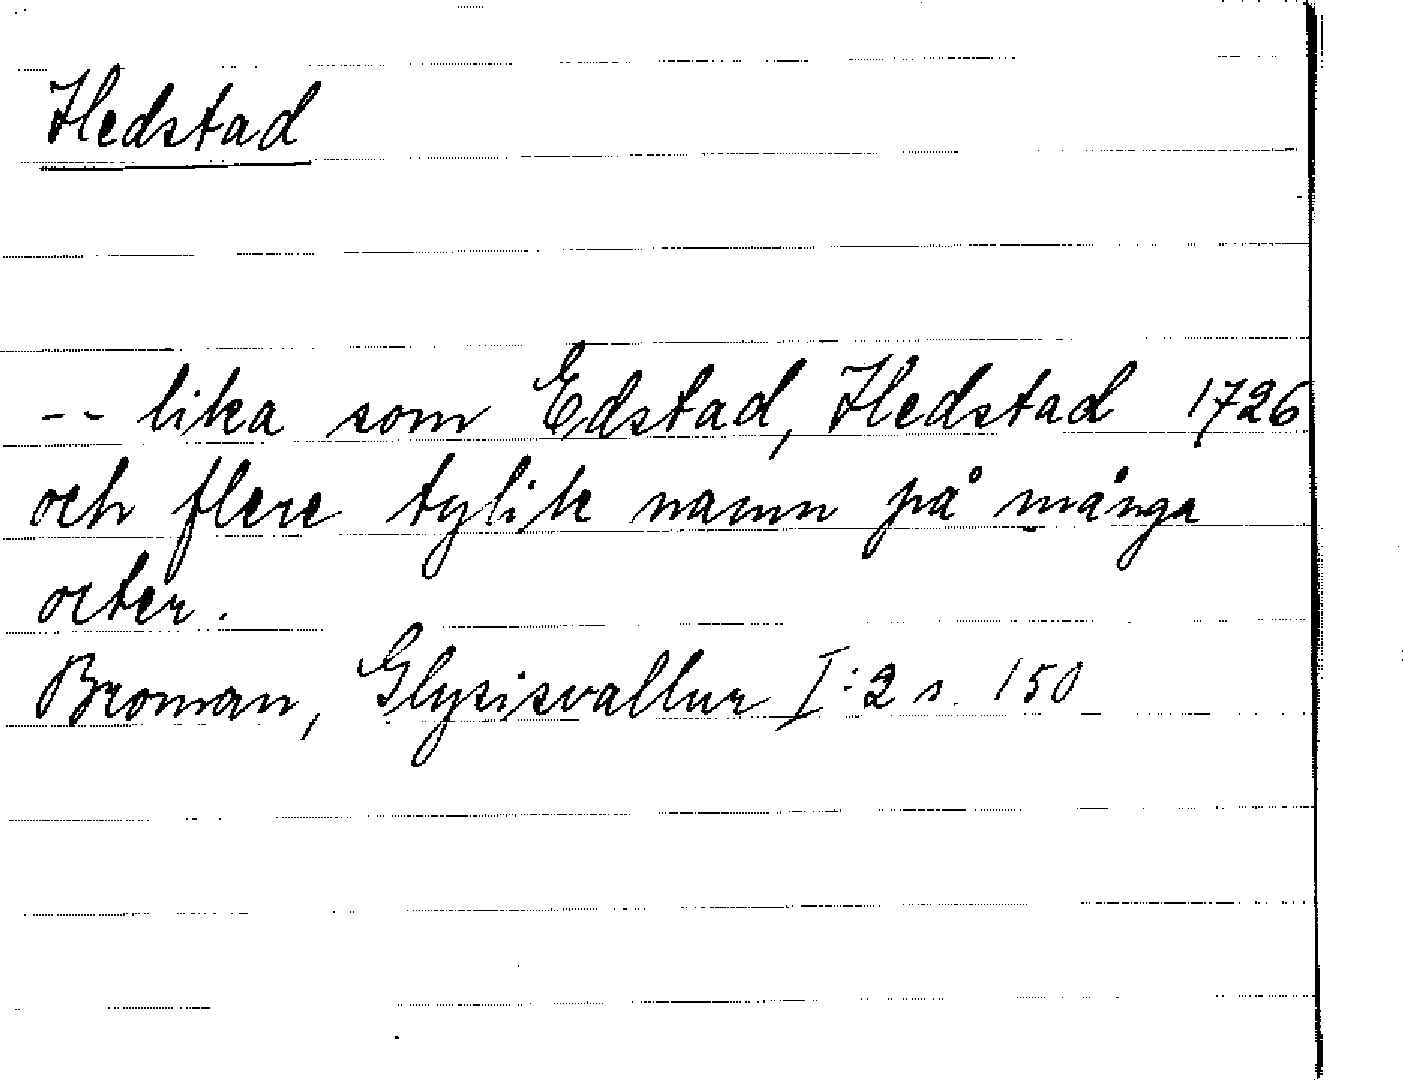 Hedstad
-- lika som Edstad, Hedstad 1726
och flere tylik namn på många
orter.
Broman, Glysisvallur I:2 s. 150